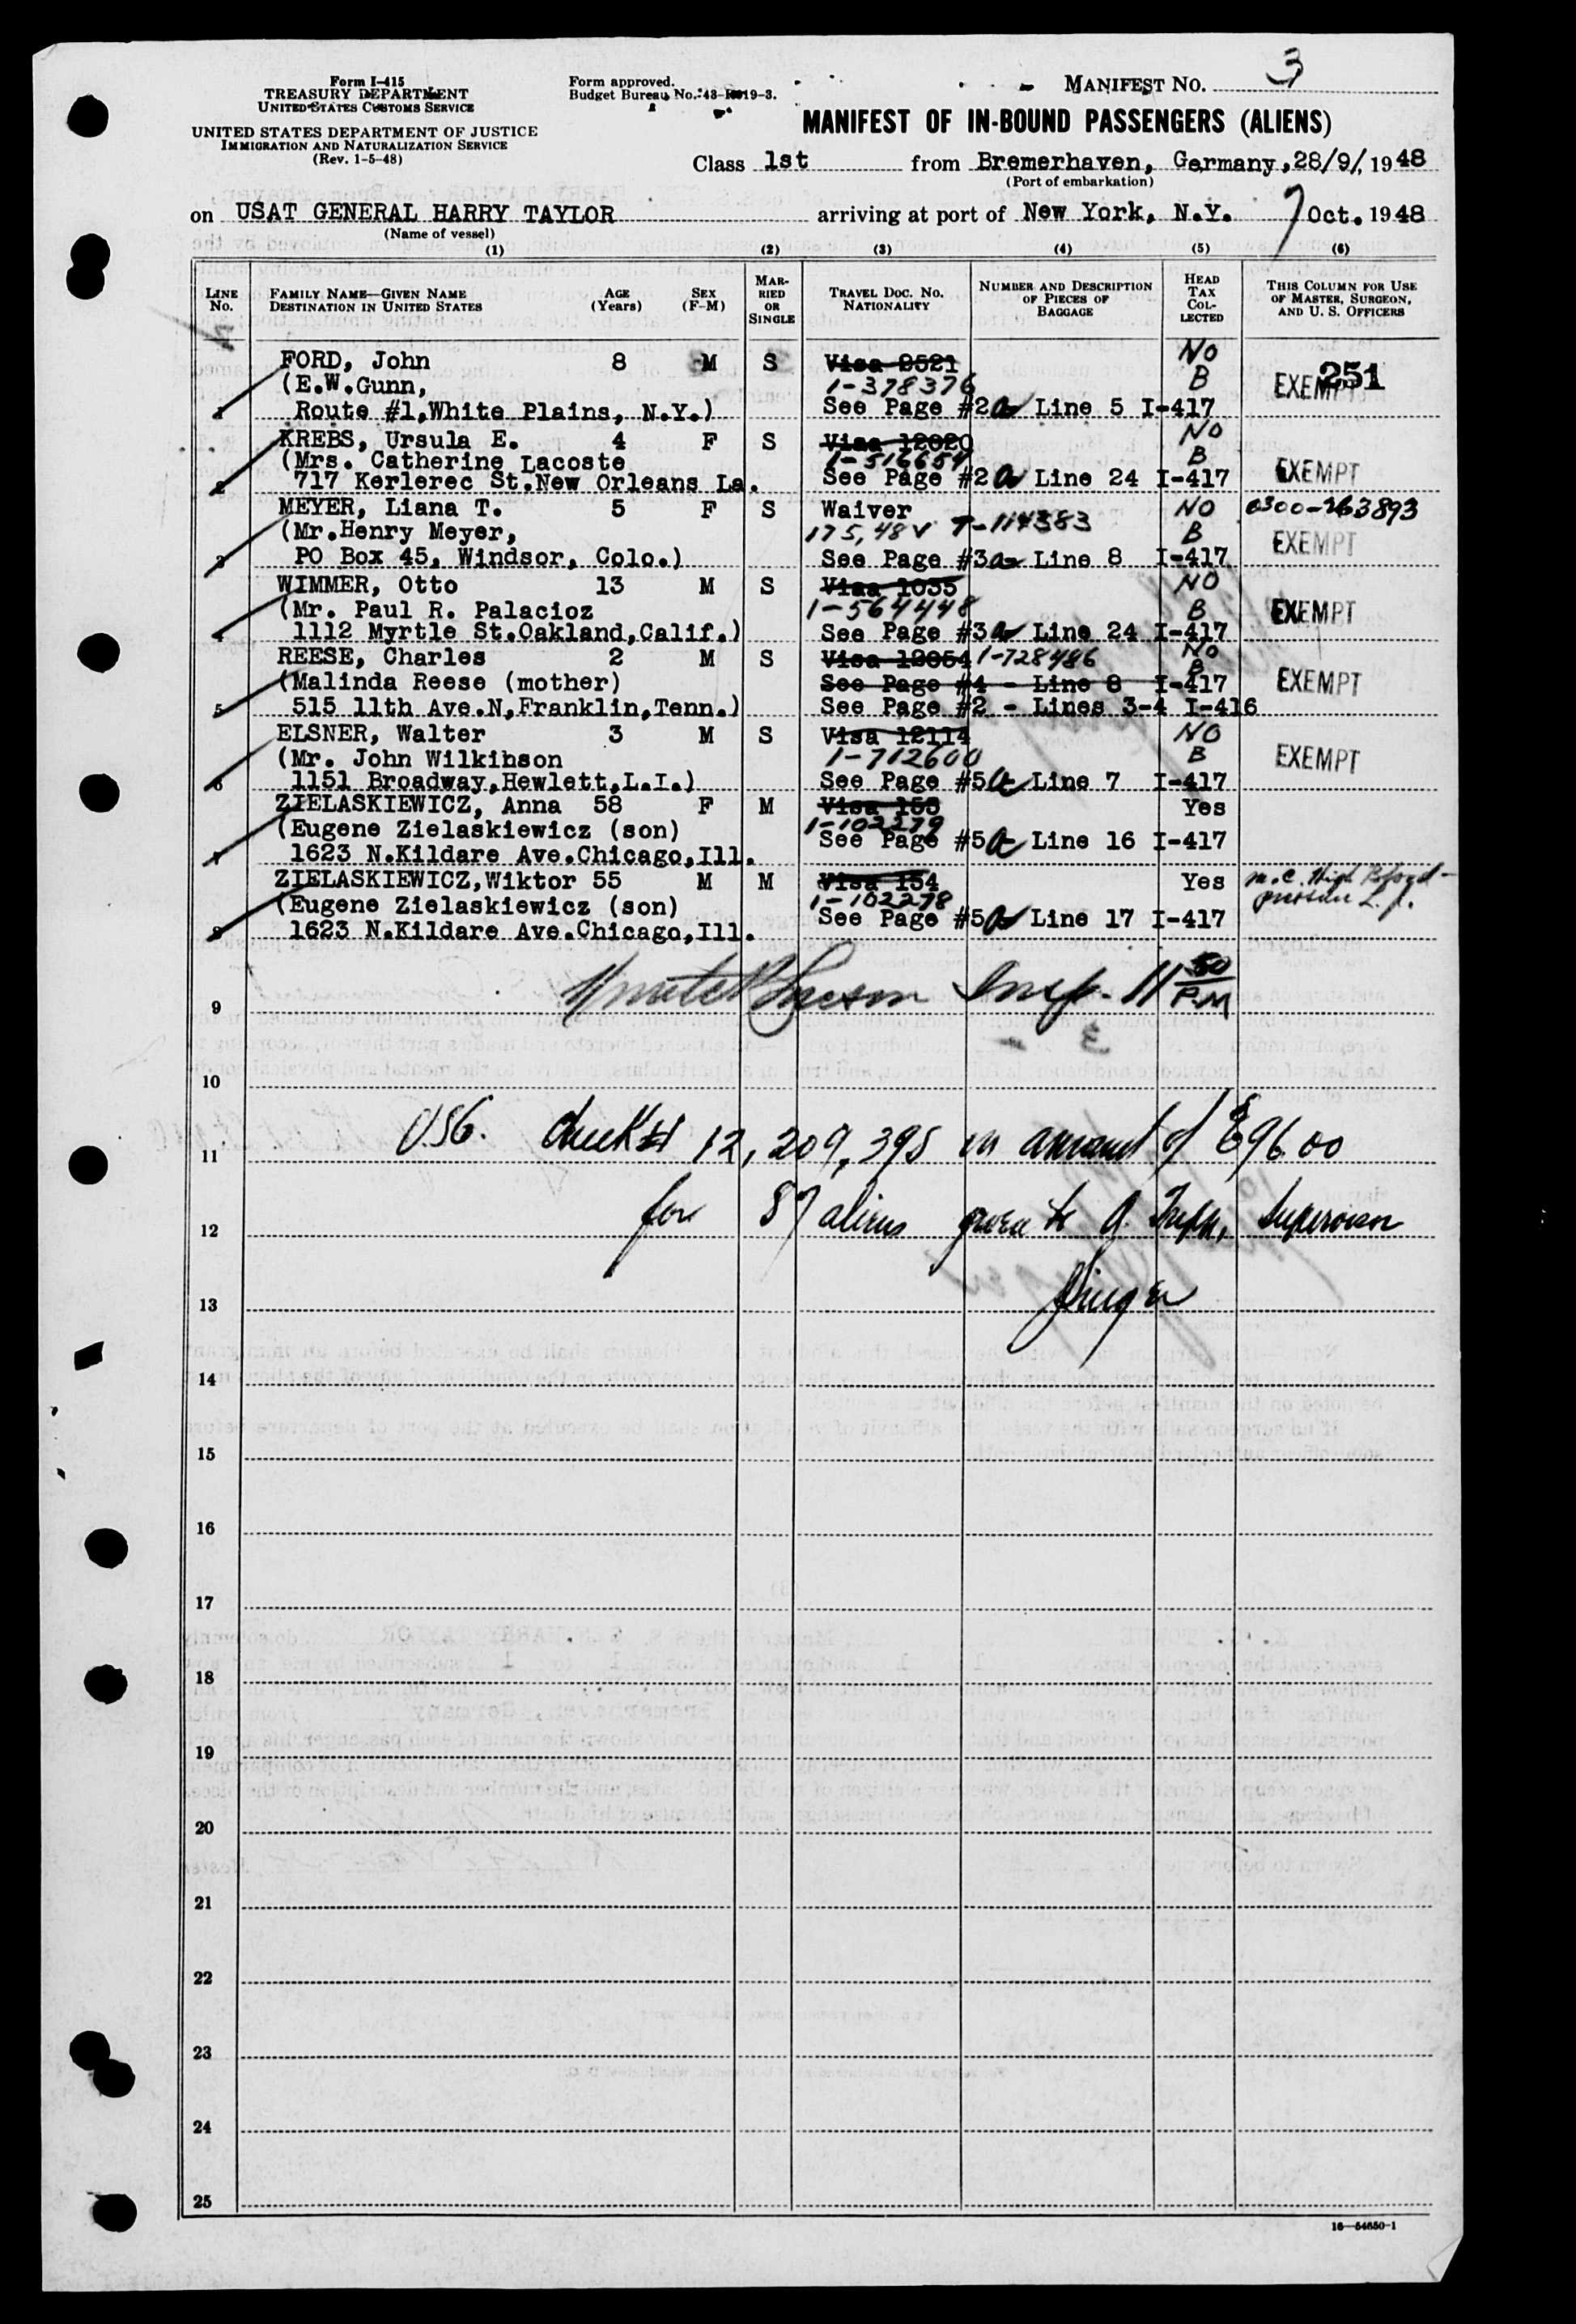 Form I-415
TREASURY DEPARTMENT
UNITED STATES CUSTOMS SERVICE
UNITED STATES DEPARTMENT OF JUSTICE
IMMIGRATION AND NATURALIZATION SERVICE
(Rev. 1-5-48)
Form approved.
Budget Bureau No. 43-R019-3.
MANIFEST NO. 3
MANIFEST OF IN-BOUND PASSENGERS (ALIENS)
Class 1st from Bremerhaven, Germany, 28/9/, 1948
(Port of embarkation)
on USAT GENERAL HARRY TAYLOR arriving at port of New York, N.Y. 7 Oct. 1948
(Name of vessel)
(1) (2) (3) (4) (5) (6)
LINE No. FAMILY NAME—GIVEN NAME DESTINATION IN UNITED STATES AGE (Years) SEX (F-M) MARRIED OR SINGLE TRAVEL DOC. NO. NATIONALITY NUMBER AND DESCRIPTION OF PIECES OF BAGGAGE HEAD TAX COLLECTED THIS COLUMN FOR USE OF MASTER, SURGEON, AND U. S. OFFICERS
FORD, John 8 M S Visa 9521 NO
(E.W.Gunn, 1-378376 B EXEMPT 251
1 Route #1,White Plains, N.Y.) See Page #2a Line 5 I-417
KREBS, Ursula E. 4 F S Visa 12020 NO
(Mrs. Catherine Lacoste 1-516654 B EXEMPT
2 717 Kerlerec St.New Orleans La. See Page #2a Line 24 I-417
MEYER, Liana T. 5 F S Waiver NO 0300-263893
(Mr.Henry Meyer, 175,48 V T-114383 B EXEMPT
3 PO Box 45, Windsor, Colo.) See Page #3a Line 8 I-417
WIMMER, Otto 13 M S Visa 1035 NO
(Mr. Paul R. Palacioz 1-564448 B EXEMPT
4 1112 Myrtle St.Oakland,Calif.) See Page #3a Line 24 I-417
REESE, Charles 2 M S Visa 12054 1-728486 NO
(Malinda Reese (mother) See Page #4 - Line 8 I-417 B EXEMPT
5 515 11th Ave.N,Franklin,Tenn.) See Page #2 - Lines 3-4 I-416
ELSNER, Walter 3 M S Visa 12114 NO
(Mr. John Wilkinson 1-712600 B EXEMPT
6 1151 Broadway,Hewlett,L.I.) See Page #5a Line 7 I-417
ZIELASKIEWICZ, Anna 58 F M Visa 153 Yes
(Eugene Zielaskiewicz (son) 1-102279
7 1623 N.Kildare Ave.Chicago,Ill. See Page #5a Line 16 I-417
ZIELASKIEWICZ,Wiktor 55 M M Visa 154 Yes M.C. High Blood
(Eugene Zielaskiewicz (son) 1-102278
8 1623 N.Kildare Ave.Chicago,Ill. See Page #5a Line 17 I-417
9 Insp. 11 50 P.M
10
11 USG. check # 12,209,395 in amount of $696.00
12 for 87 aliens given to Supervisor
13
14
15
16
17
18
19
20
21
22
23
24
25
16—54650-1